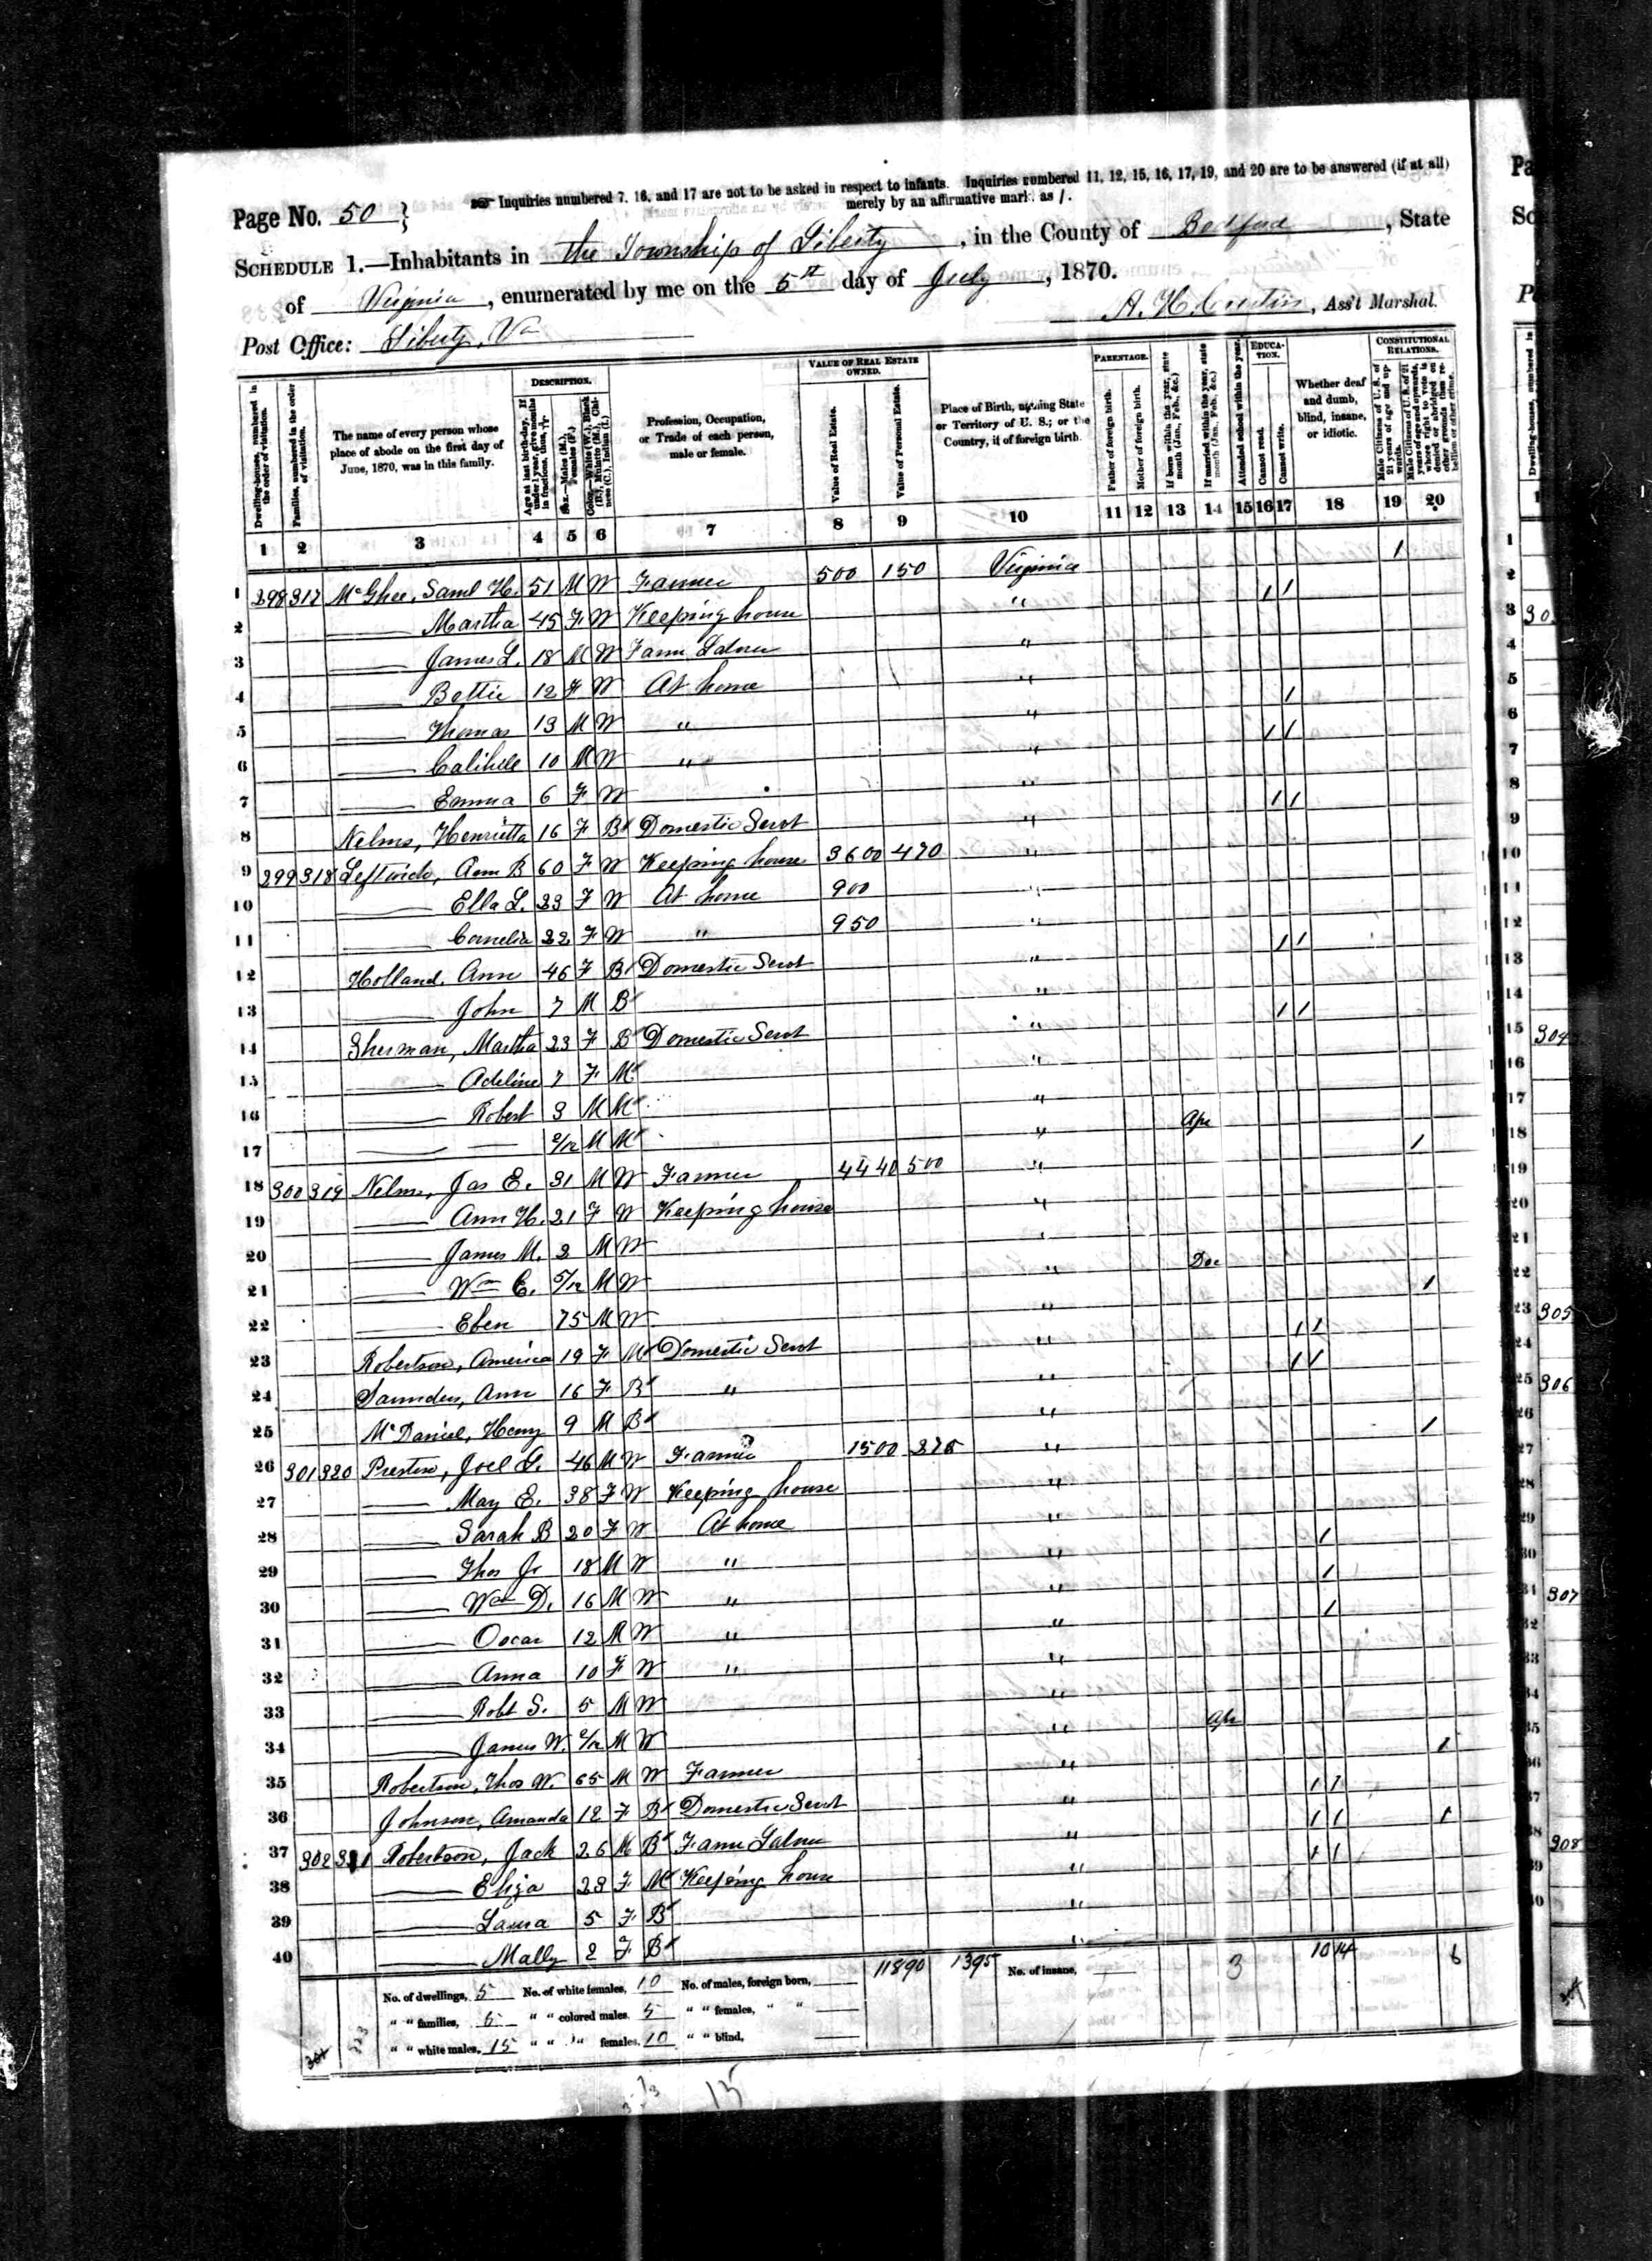 Inquiries numbered 7, 16, and 17 are not to be asked in respect to infants. Inquiries numbered 11, 12, 15, 16, 17, 19, and 20 are to be answered (if at all)
merely by an affirmative mark, as /.
Page No. 50
SCHEDULE 1.—Inhabitants in the Township of Liberty, in the County of Bedford, State
of Virginia, enumerated by me on the 5th day of July, 1870.
Post Office: Liberty, Va
A. H. , Ass't Marshal.
Dwelling-houses, numbered in the order of visitation.
Families, numbered in the order of visitation.
The name of every person whose place of abode on the first day of June, 1870, was in this family.
DESCRIPTION.
Age at last birth-day. If under 1 year, give months in fractions, thus, 3/12
Sex.—Males (M.), Females (F.)
Color.—White (W.), Black (B.), Mulatto (M.), Chinese (C.), Indian (I.)
Profession, Occupation, or Trade of each person, male or female.
VALUE OF REAL ESTATE OWNED.
Value of Real Estate.
Value of Personal Estate.
Place of Birth, naming State or Territory of U. S.; or the Country, if of foreign birth.
PARENTAGE.
Father of foreign birth.
Mother of foreign birth.
If born within the year, state month (Jan., Feb., &c.)
If married within the year, state month (Jan., Feb., &c.)
Attended school within the year.
EDUCATION.
Cannot read.
Cannot write.
Whether deaf and dumb, blind, insane, or idiotic.
CONSTITUTIONAL RELATIONS.
Male Citizens of U. S. of 21 years of age and upwards.
Male Citizens of U. S. of 21 years of age and upwards, whose right to vote is denied or abridged on other grounds than rebellion or other crime.
1 2 3 4 5 6 7 8 9 10 11 12 13 14 15 16 17 18 19 20
1 298 317 McGhee, Saml H. 51 M W Farmer 500 150 Virginia 1
2 Martha 45 F W Keeping house " 1 1
3 James L. 18 M W Farm Labuer "
4 Bettie 12 F W At home "
5 Thomas 13 M W " " 1
6 Calihill 10 M W " " 1 1
7 Emma 6 F W "
8 Nelms, Henrietta 16 F B Domestic Servt " 1 1
9 299 318 Leftwich, Ann B 60 F W Keeping house 3600 470 "
10 Ella L. 23 F W At home 900 "
11 Cornelia 22 F W " 950 "
12 Holland, Ann 46 F B Domestic Servt " 1 1
13 John 7 M B "
14 Sherman, Martha 23 F B Domestic Servt " 1 1
15 Adeline 7 F M "
16 Robert 3 M M "
17 2/12 M M " Apr
18 300 319 Nelms, Jas E. 31 M W Farmer 4440 500 " 1
19 Ann H. 21 F W Keeping house "
20 James M. 2 M W "
21 Wm C. 5/12 M W " Dec
22 Eben 75 M W " 1
23 Robertson, America 19 F M Domestic Servt " 1 1
24 Saunders, Ann 16 F B " " 1 1
25 McDaniel, Henry 9 M B "
26 301 320 Preston, Joel S. 46 M W Farmer 1500 275 " 1
27 May E. 38 F W Keeping house "
28 Sarah B 20 F W At home "
29 Thos Jr 18 M W " " 1
30 Wm D. 16 M W " " 1
31 Oscar 12 M W " " 1
32 Anna 10 F W " "
33 Robt S. 5 M W "
34 James W. 2/12 M W " Apr
35 Robertson, Thos W. 65 M W Farmer " 1
36 Johnson, Amanda 12 F B Domestic Servt " 1 1
37 302 321 Robertson, Jack 26 M B Farm Labuer " 1 1 1
38 Eliza 23 F M Keeping house " 1 1
39 Laura 5 F B "
40 Mally 2 F B "
No. of dwellings, 5 No. of white females, 10 No. of males, foreign born, 11890 1395 No. of insane, 3 10 14 6
" " families, 5 " " colored males, 5 " " females, " "
" " white males, 15 " " " females, 10 " " blind,